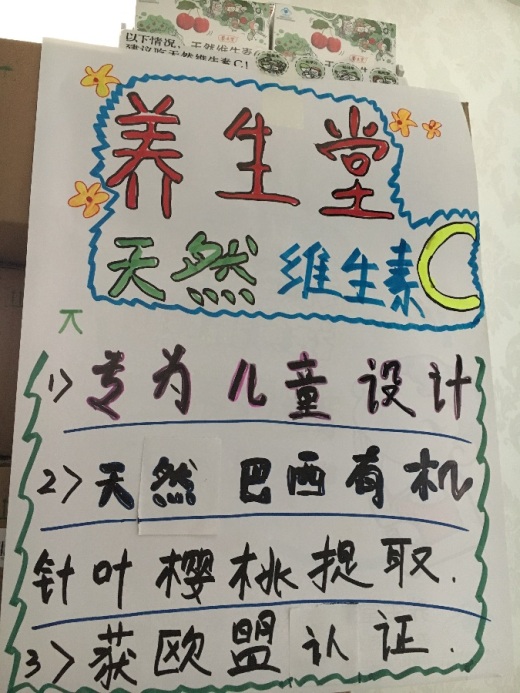 以下情况,天然维生素
建议吃天然维生素C!
养生堂
天然维生素C
1>专为儿童设计
2>天然巴西有机
针叶樱桃提取.
3>获欧盟认证.